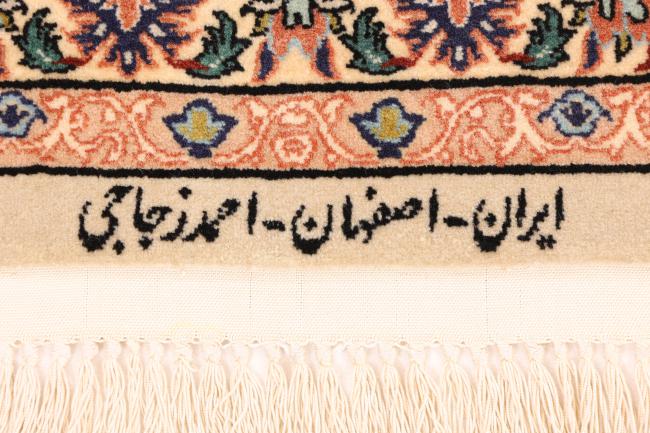 ایران - اصفهان - احمد زجاجی